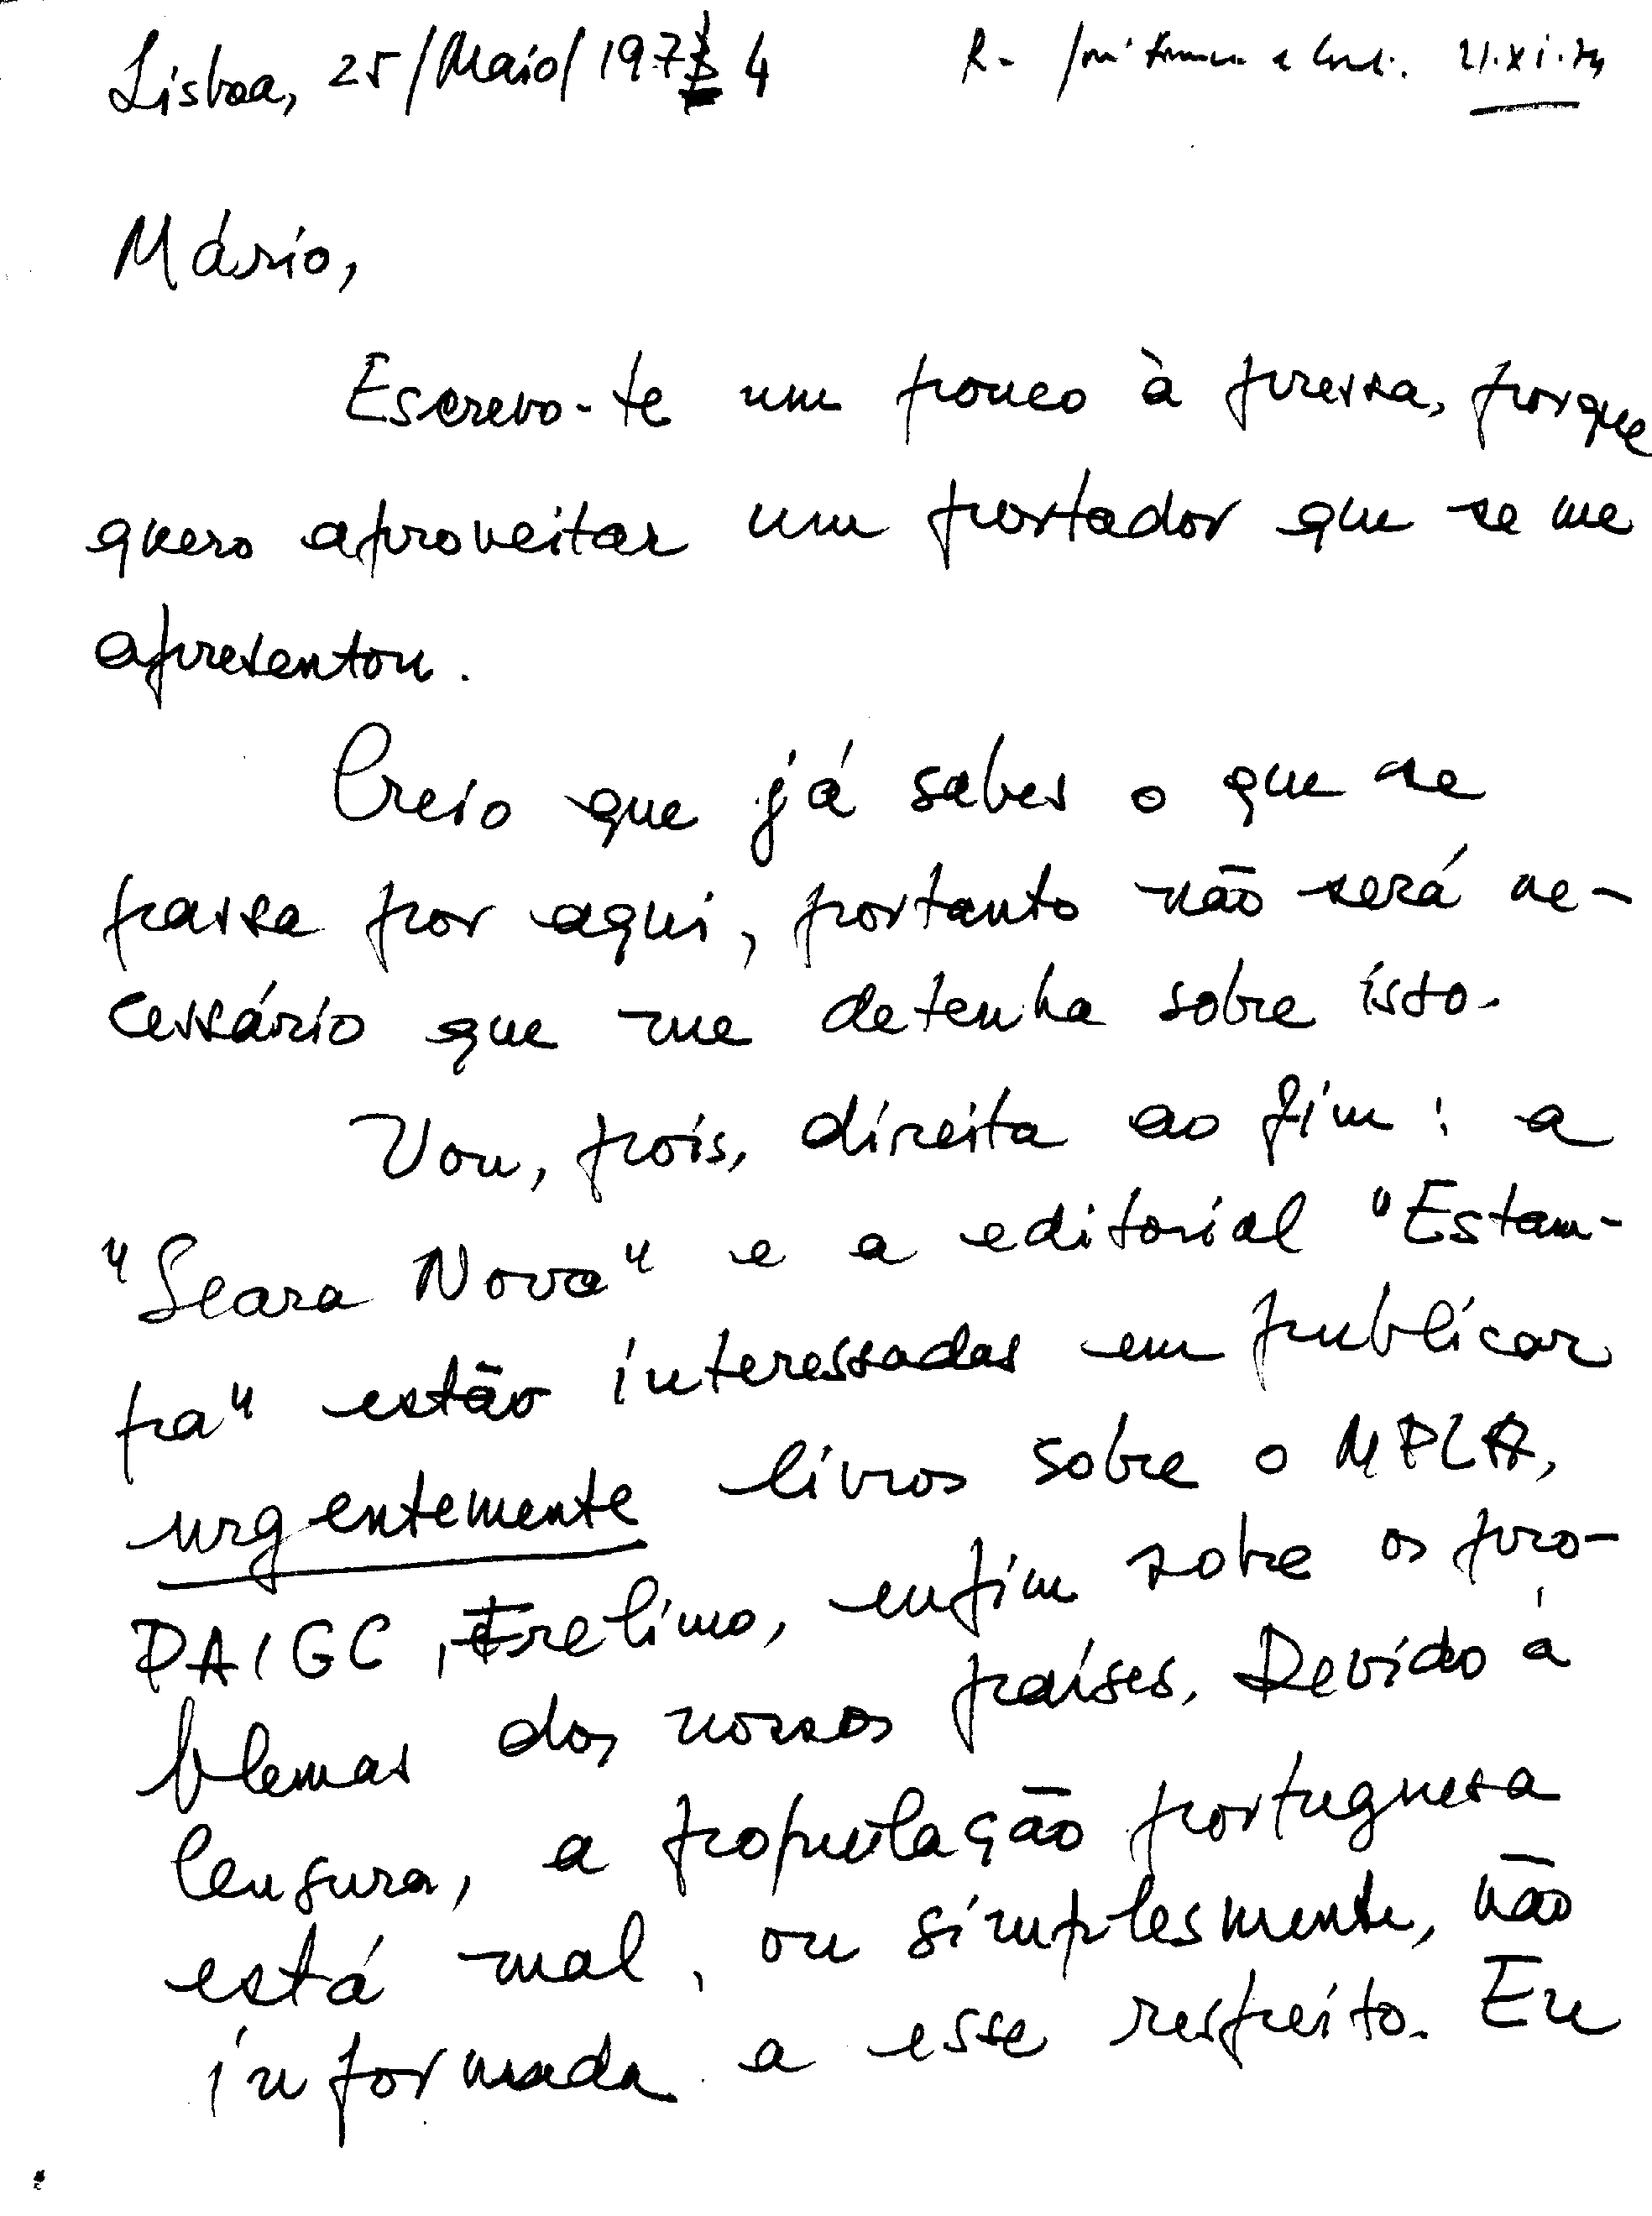 Lisboa, 25/Maio/1974 R- 21.XI.74
Mário,
Escrevo-te um pouco à pressa, porque
quero aproveitar um portador que se me
apresentou.
Creio que já sabes o que se
passa por aqui, portanto não será ne-
cessário que me detenha sobre isto.
Vou, pois, direita ao fim: a
"Seara Nova" e a editorial "Estam-
pa" estão interessadas em publicar
urgentemente livros sobre o MPLA,
PAIGC, Frelimo, enfim sobre os pro-
blemas dos nossos países. Devido à
Censura, a população portuguesa
está mal, ou simplesmente, não
informada a esse respeito. Eu